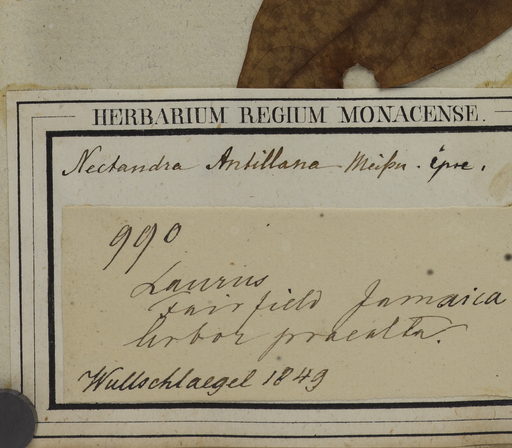 HERBARIUM REGIUM MONACENSE.
Nectandra Antillana Meißn. ipse.
990
Laurus
Fairfield Jamaica
Arbor praealta.
Wullschlaegel 1849